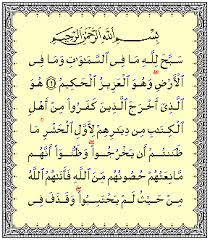 بِسْمِ اللَّهِ الرَّحْمَٰنِ الرَّحِيمِ
سَبَّحَ لِلَّهِ مَا فِي السَّمَٰوَٰتِ وَمَا فِي
الْأَرْضِ وَهُوَ الْعَزِيزُ الْحَكِيمُ ١ هُوَ
الَّذِي أَخْرَجَ الَّذِينَ كَفَرُوا مِنْ أَهْلِ
الْكِتَٰبِ مِن دِيَٰرِهِمْ لِأَوَّلِ الْحَشْرِ مَا
ظَنَنتُمْ أَن يَخْرُجُوا وَظَنُّوا أَنَّهُم
مَّانِعَتُهُمْ حُصُونُهُم مِّنَ اللَّهِ فَأَتَىٰهُمُ اللَّهُ
مِنْ حَيْثُ لَمْ يَحْتَسِبُوا وَقَذَفَ فِي